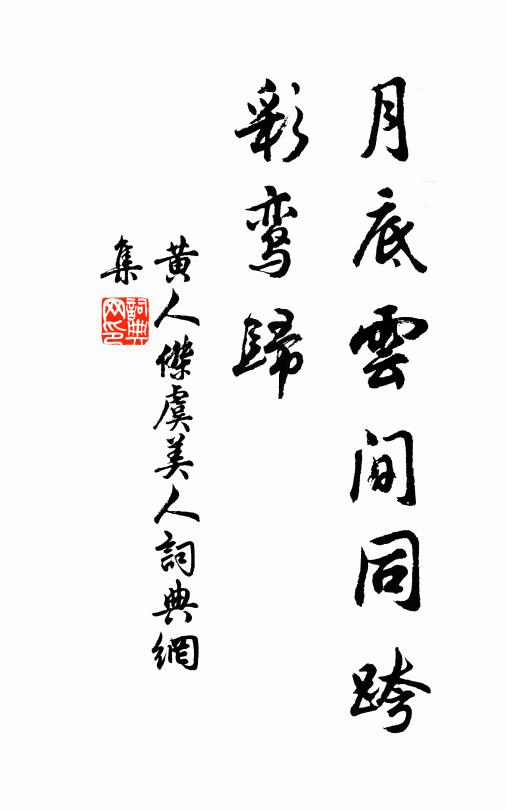 月底雲间同跨
彩鸾歸
黄人傑虞美人詞典網
集
詞典
网印